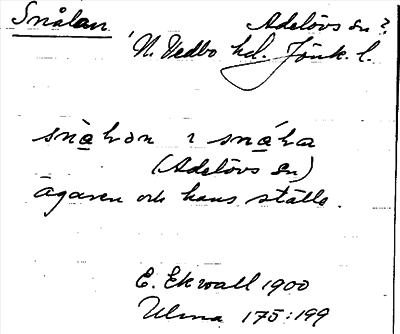 Snålan
Adelövs sn?
N. Vedbo hd. Jönk. l.
(Adelövs sn)
ägaren och hans ställe.
E. Ekwall 1900
Ulma 175:199